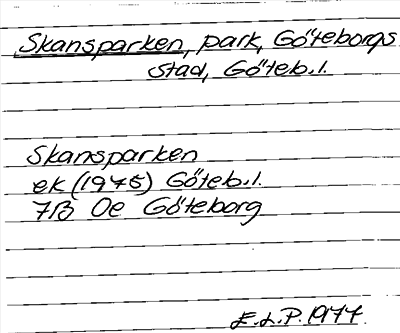 Skansparken, park, Göteborgs
stad, Göteb.l.
Skansparken
ek (1975) Göteb.l.
7B Oe Göteborg
E.L.P. 1977